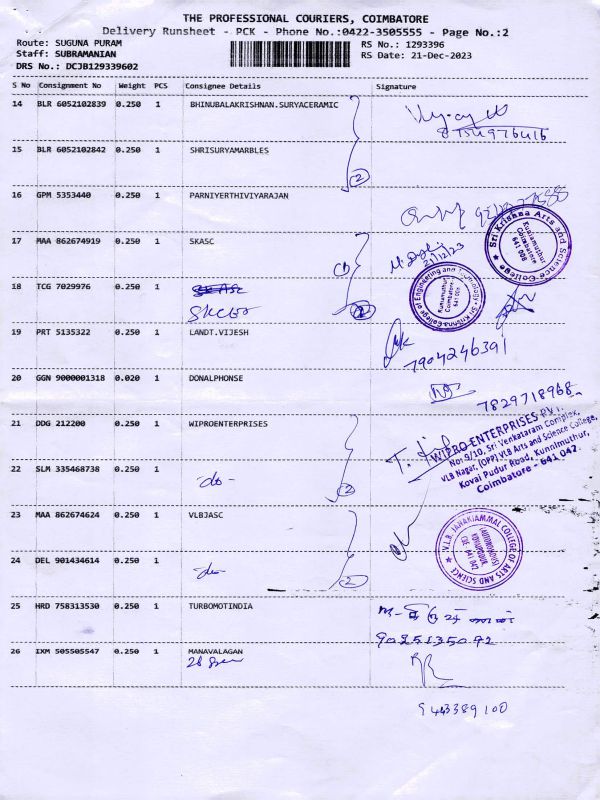 THE PROFESSIONAL COURIERS, COIMBATORE
Delivery Runsheet - PCK - Phone No.:0422-3505555 - Page No.:2
Route: SUGUNA PURAM
RS No.: 1293396
Staff: SUBRAMANIAN
RS Date: 21-Dec-2023
DRS No.: DCJB129339602
S No Consignment No Weight PCS Consignee Details Signature
14 BLR 6052102839 0.250 1 BHINUBALAKRISHNAN.SURYACERAMIC
15 BLR 6052102842 0.250 1 SHRISURYAMARBLES
2
16 GPM 5353440 0.250 1 PARNIYERTHIVIYARAJAN
17 MAA 862674919 0.250 1 SKASC
21/12/23
Sri Krishna Arts and Science College
Kuniamuthur
Coimbatore
641 008
18 TCG 7029976 0.250 1
Sri Krishna College of Engineering and Technology
Kuniamuthur
Coimbatore
19 PRT 5135322 0.250 1 LANDT.VIJESH
7904246391
20 GGN 9000001318 0.020 1 DONALPHONSE
7829718968
21 DDG 212200 0.250 1 WIPROENTERPRISES
WIPRO ENTERPRISES PVT.
No: 9/10, Sri Venkataram Complex,
VLB Nagar, (OPP) VLB Arts and Science College,
Kovai Pudur Road, Kunnimuthur,
Coimbatore - 641 042.
22 SLM 335468738 0.250 1 -do-
2
23 MAA 862674624 0.250 1 VLBJASC
V.L.B. JANAKIAMMAL COLLEGE OF ARTS AND SCIENCE
(AUTONOMOUS)
KOVAIPUDUR
CBE 641 042
24 DEL 901434614 0.250 1 -do-
2
25 HRD 758313530 0.250 1 TURBOMOTINDIA
9025135042
26 IXM 505505547 0.250 1 MANAVALAGAN
9443389100